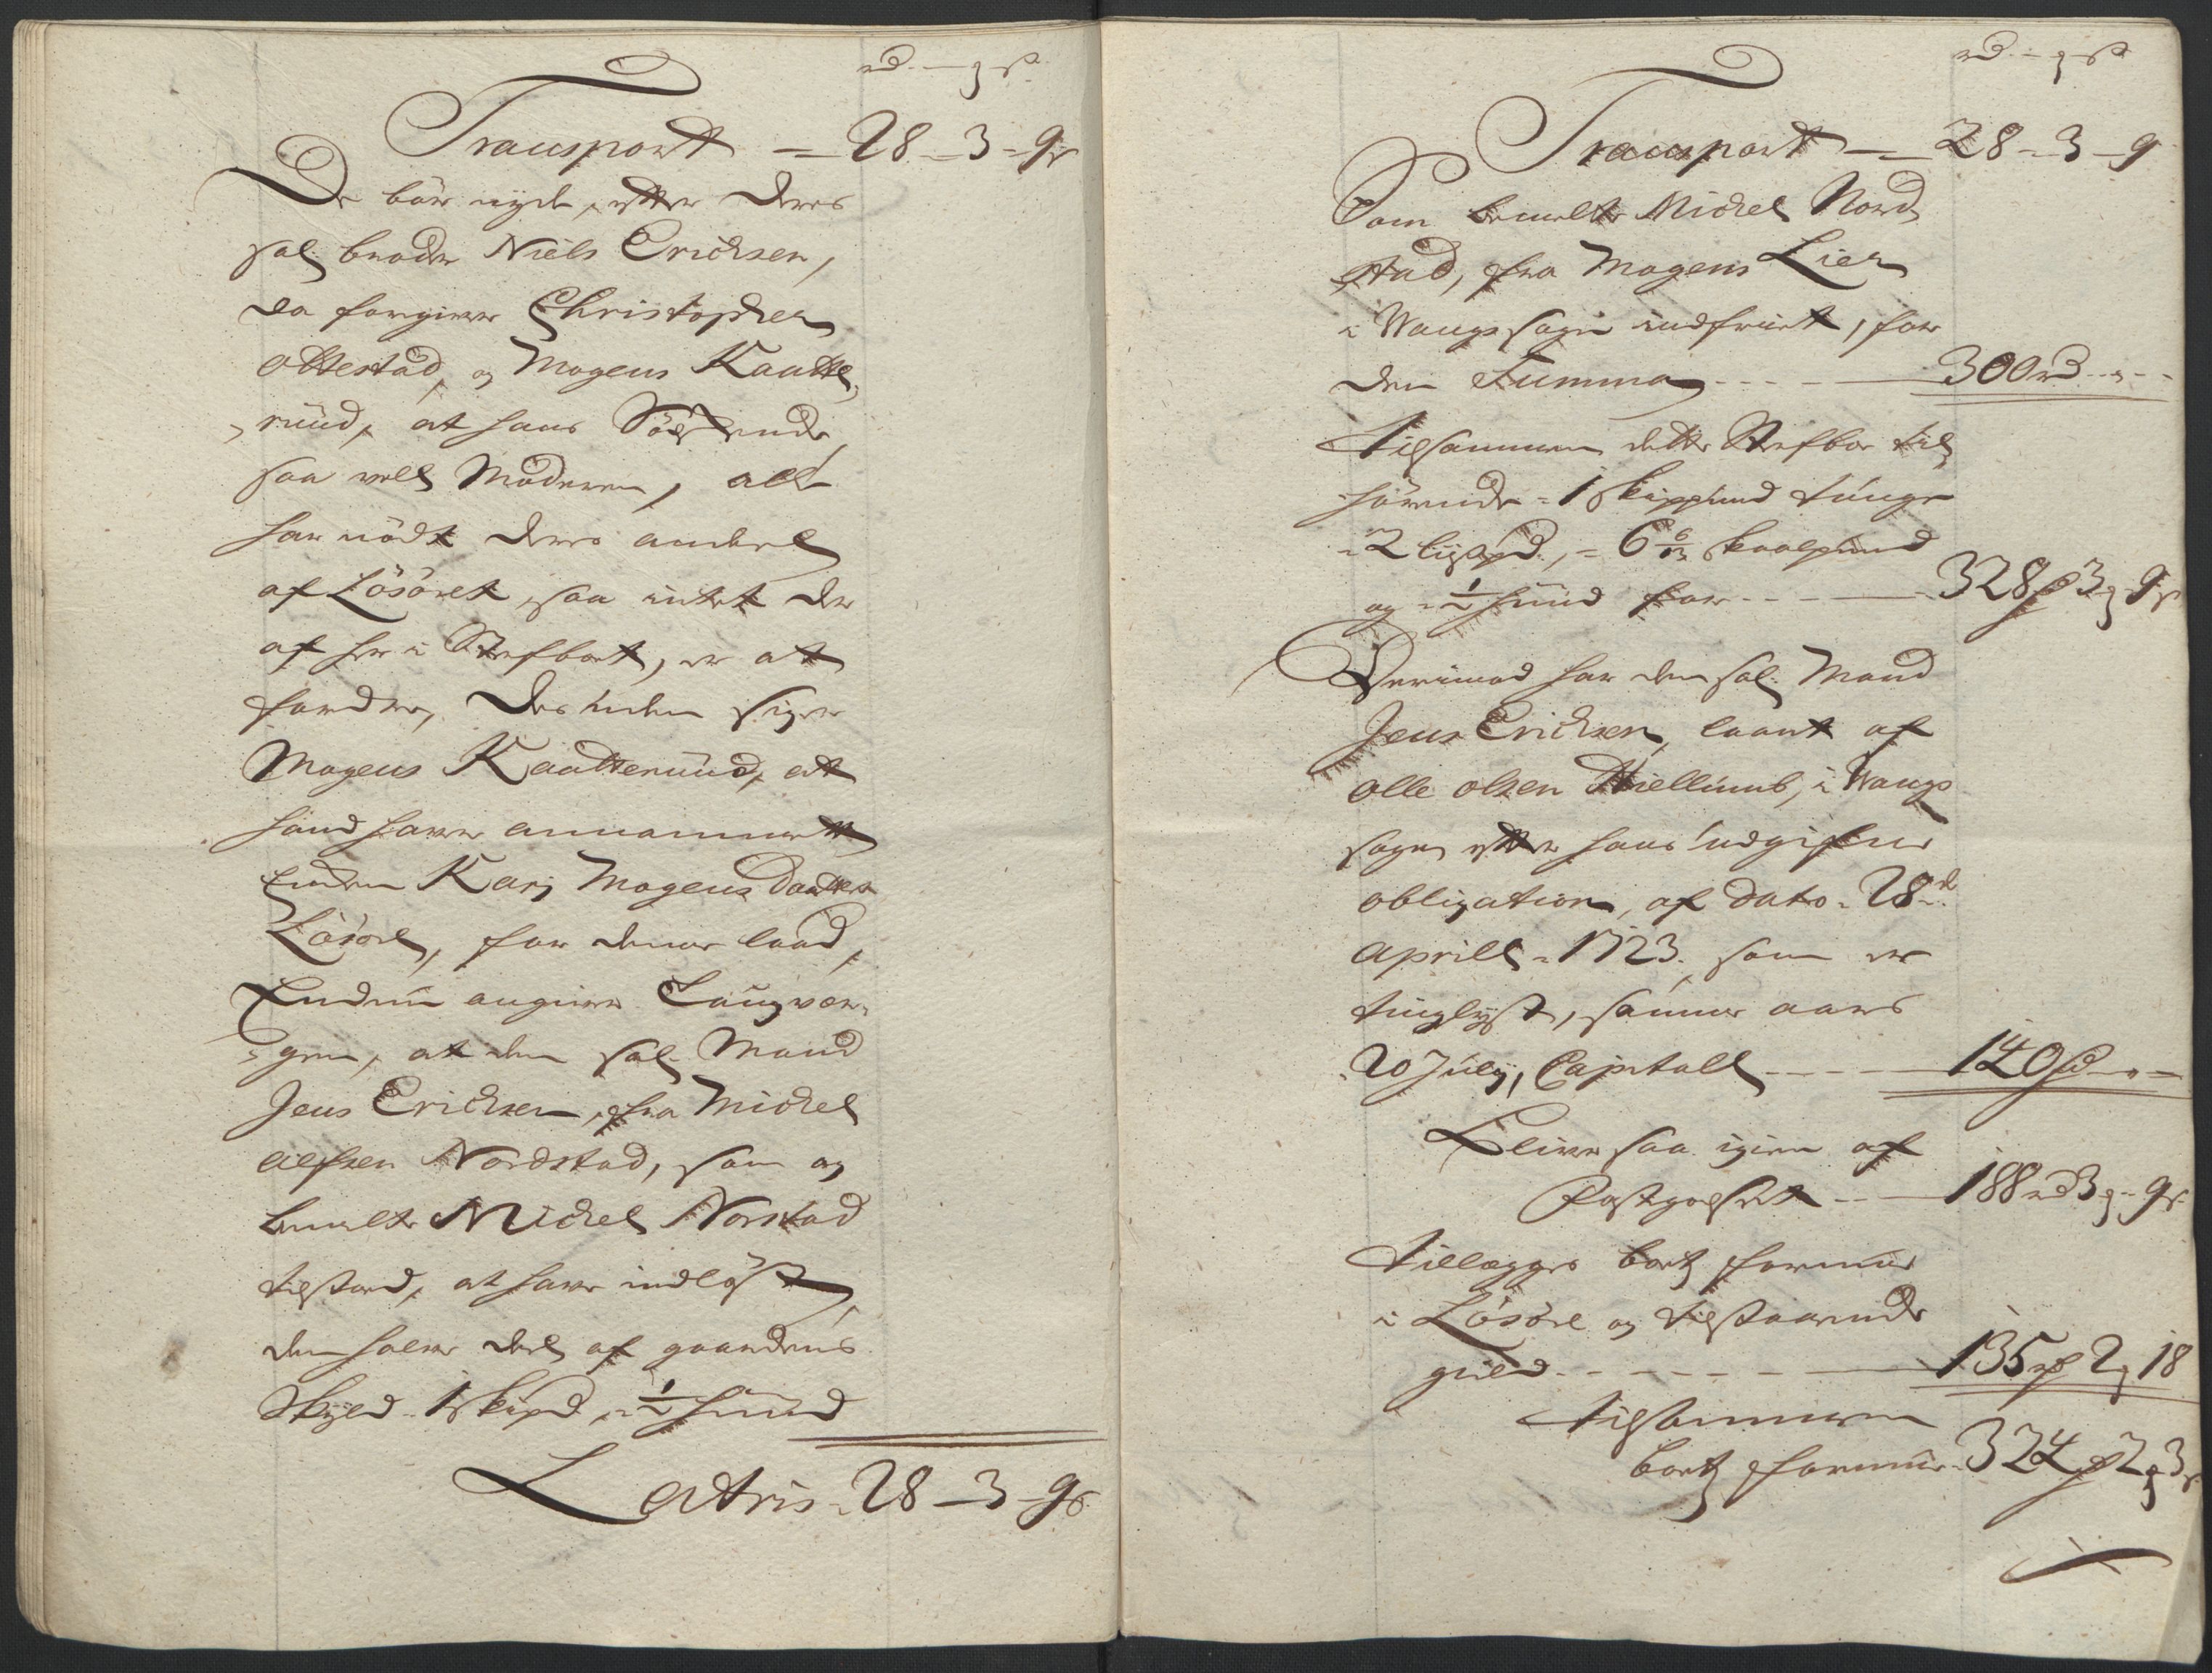 rd - q - s
Transport - 28 - 3 - 9 s
De bør nyde, efter deres
sal broder Niels Erichsen,
da foregiver Christopher
Ottestad, og Mogens Kaatte,
rüud, at hans Södskende
saa vell Moderen, alt
har nödt deres andeel
af Lösöret, saa intet der
af her i Sterfboet, er at
fordre, Desuden siger
Mogens Kaatterüud, at
hand haver annammett
Enken Karj Mogens Daatters
Lösöre, for denne laad,
Endnu angiver Laugvær,
gen, at den sal. Mand
Jens Erichsen, fra Michel
Nordstad, som og
bemelte Michel Norstad
tilstood, at have indlöst
den halve deel af gaardens
Skyld - 1 skipd, - 1/2 hüud
Latris - 28 - 3 - 9 s
rd - q - s
Transport - 28 - 3 - 9
Som bemelte Michel Nord,
stad, fra Mogens Lier
i Wangs sogn indfriet, for
den Summa - - - 300 rd - -
Tilsammen dette Sterfboe til,
hörende - 1 skippund tunge
- 2 lispd, - 6 skaalpund
og - 1/2 hüud for - - - 328 rd 3 q 9 s
Derimod har den sal. Mand
Jens Erichsen, laant af
Olle Olsen Hiellumb, i Wangs
sogn efter hans udgifne
obligation, af dato - 28 d
Aprill - 1723. som er
tinglyst, samme aars
20 July, Capitall - - - 140 rd - -
Bliver saa igien af
Jordegodset - - - 188 rd 3 q - 9 s
Tillegges boets formue
i Lösöre og tilstaaende
gield - - - - - 135 rd 2 q 18
Tilsammen
boets formue - 324 rd 2 q 3 s